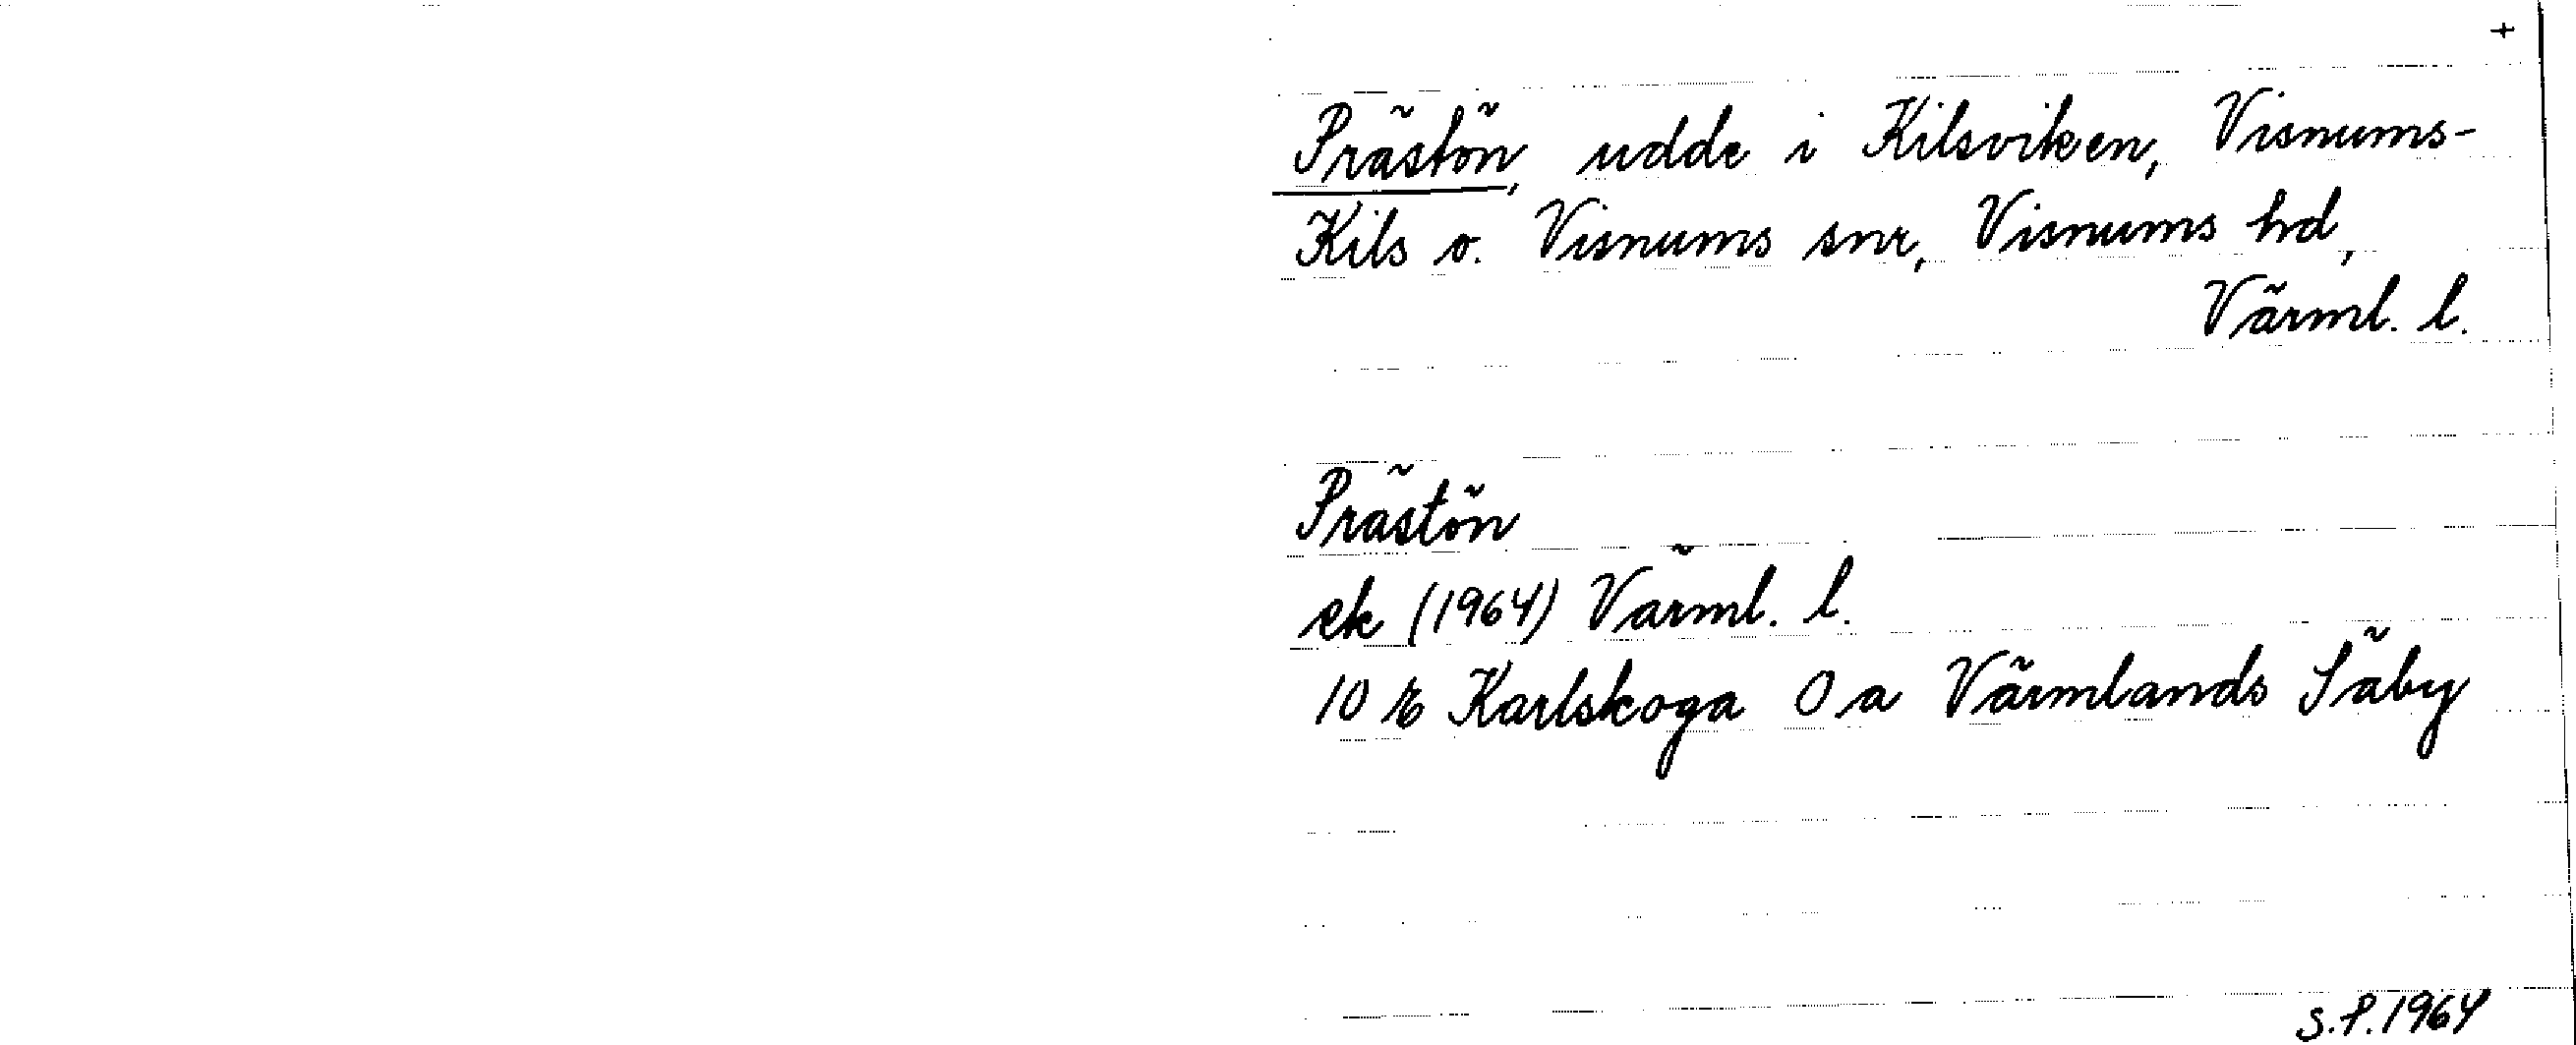 +
Prästön, udde i Kilsviken, Visnums-
Kils o. Visnums snr, Visnums hd,
Värml. l.
Prästön
ek (1964) Värml. l.
10 Karlskoga O a Värmlands Säby
S.P. 1964